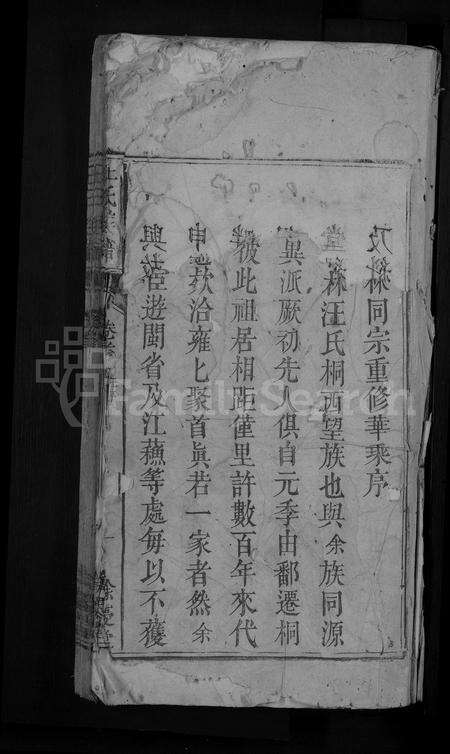 及林同宗重修華乘序
林汪氏桐西望族也與余族同源
異派厥初先人俱自元季由鄱遷桐
彼此祖居相距僅里許數百年來代
申欵洽雍匕聚首眞若一家者然余
與宦遊閩省及江蘓等處每以不獲
汪氏宗譜
FamilySearch